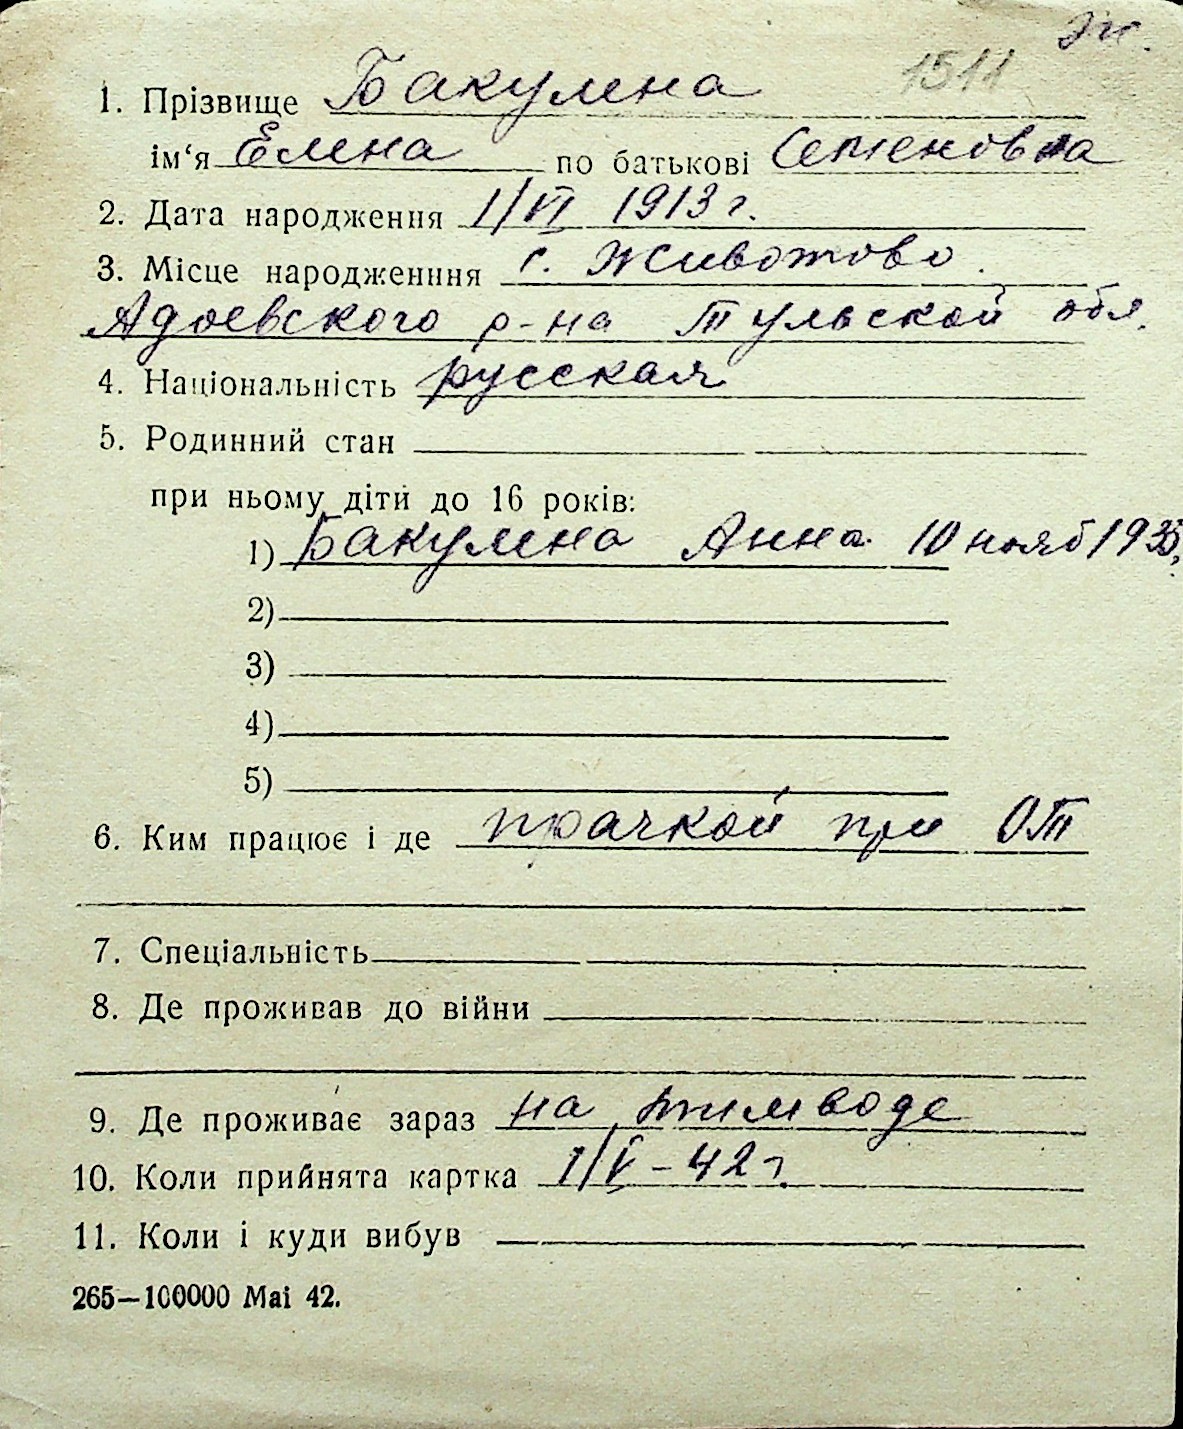 Эт.
1511
1. Прізвище Бакулена
ім‘я Елена по батькові Семеновна
2. Дата народження 1/VI 1913 г.
3. Місце народженння с. Животово.
Адоевского р-на Тульской обл.
4. Національність русская
5. Родинний стан
при ньому діти до 16 років:
1) Бакулена Анна 10 нояб 1935
2)
3)
4)
5)
6. Ким працює і де прачкой при ОТ
7. Спеціальність
8. Де проживав до війни
9. Де проживає зараз на
10. Коли прийнята картка 1/V - 42 г.
11. Коли і куди вибув
265—100000 Mai 42.